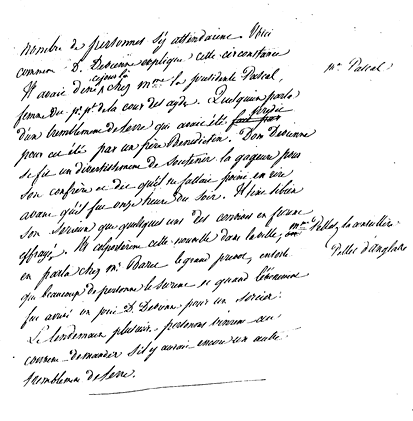 nombre de personnes s'y attendaient. Voici
comment D. Devienne explique cette circonstance
Il avait diné ce jour là chez Mme la presidente Pascal, Mr Pascal
femme du pr. pt. de la cour des aydes. Quelqu'un parla
d'un tremblement de terre qui avait été predit
pour cet été par un frere Benedictin. Dom Devienne
se fit un divertissement de soutenir la gageure pour
son confrere et dit qu'il ne fallait point en rire
avant qu'il fut onze heures du soir. Il tint si bien
son serieux que quelques uns des convives en furent
effrayés. Ils colporterent cette nouvelle dans la ville, Mme Pellet, la conseillere
en parla chez Mr Baret le grand prevot, en sorte Pellet d'Anglade
que beaucoup de personnes le surent et quand l'évenement
fut arrivé on prit D. Devienne pour un sorcier.
Le lendemain plusieurs personnes vinrent au
couvent demander s'il y aurait encore un autre
tremblement de terre.